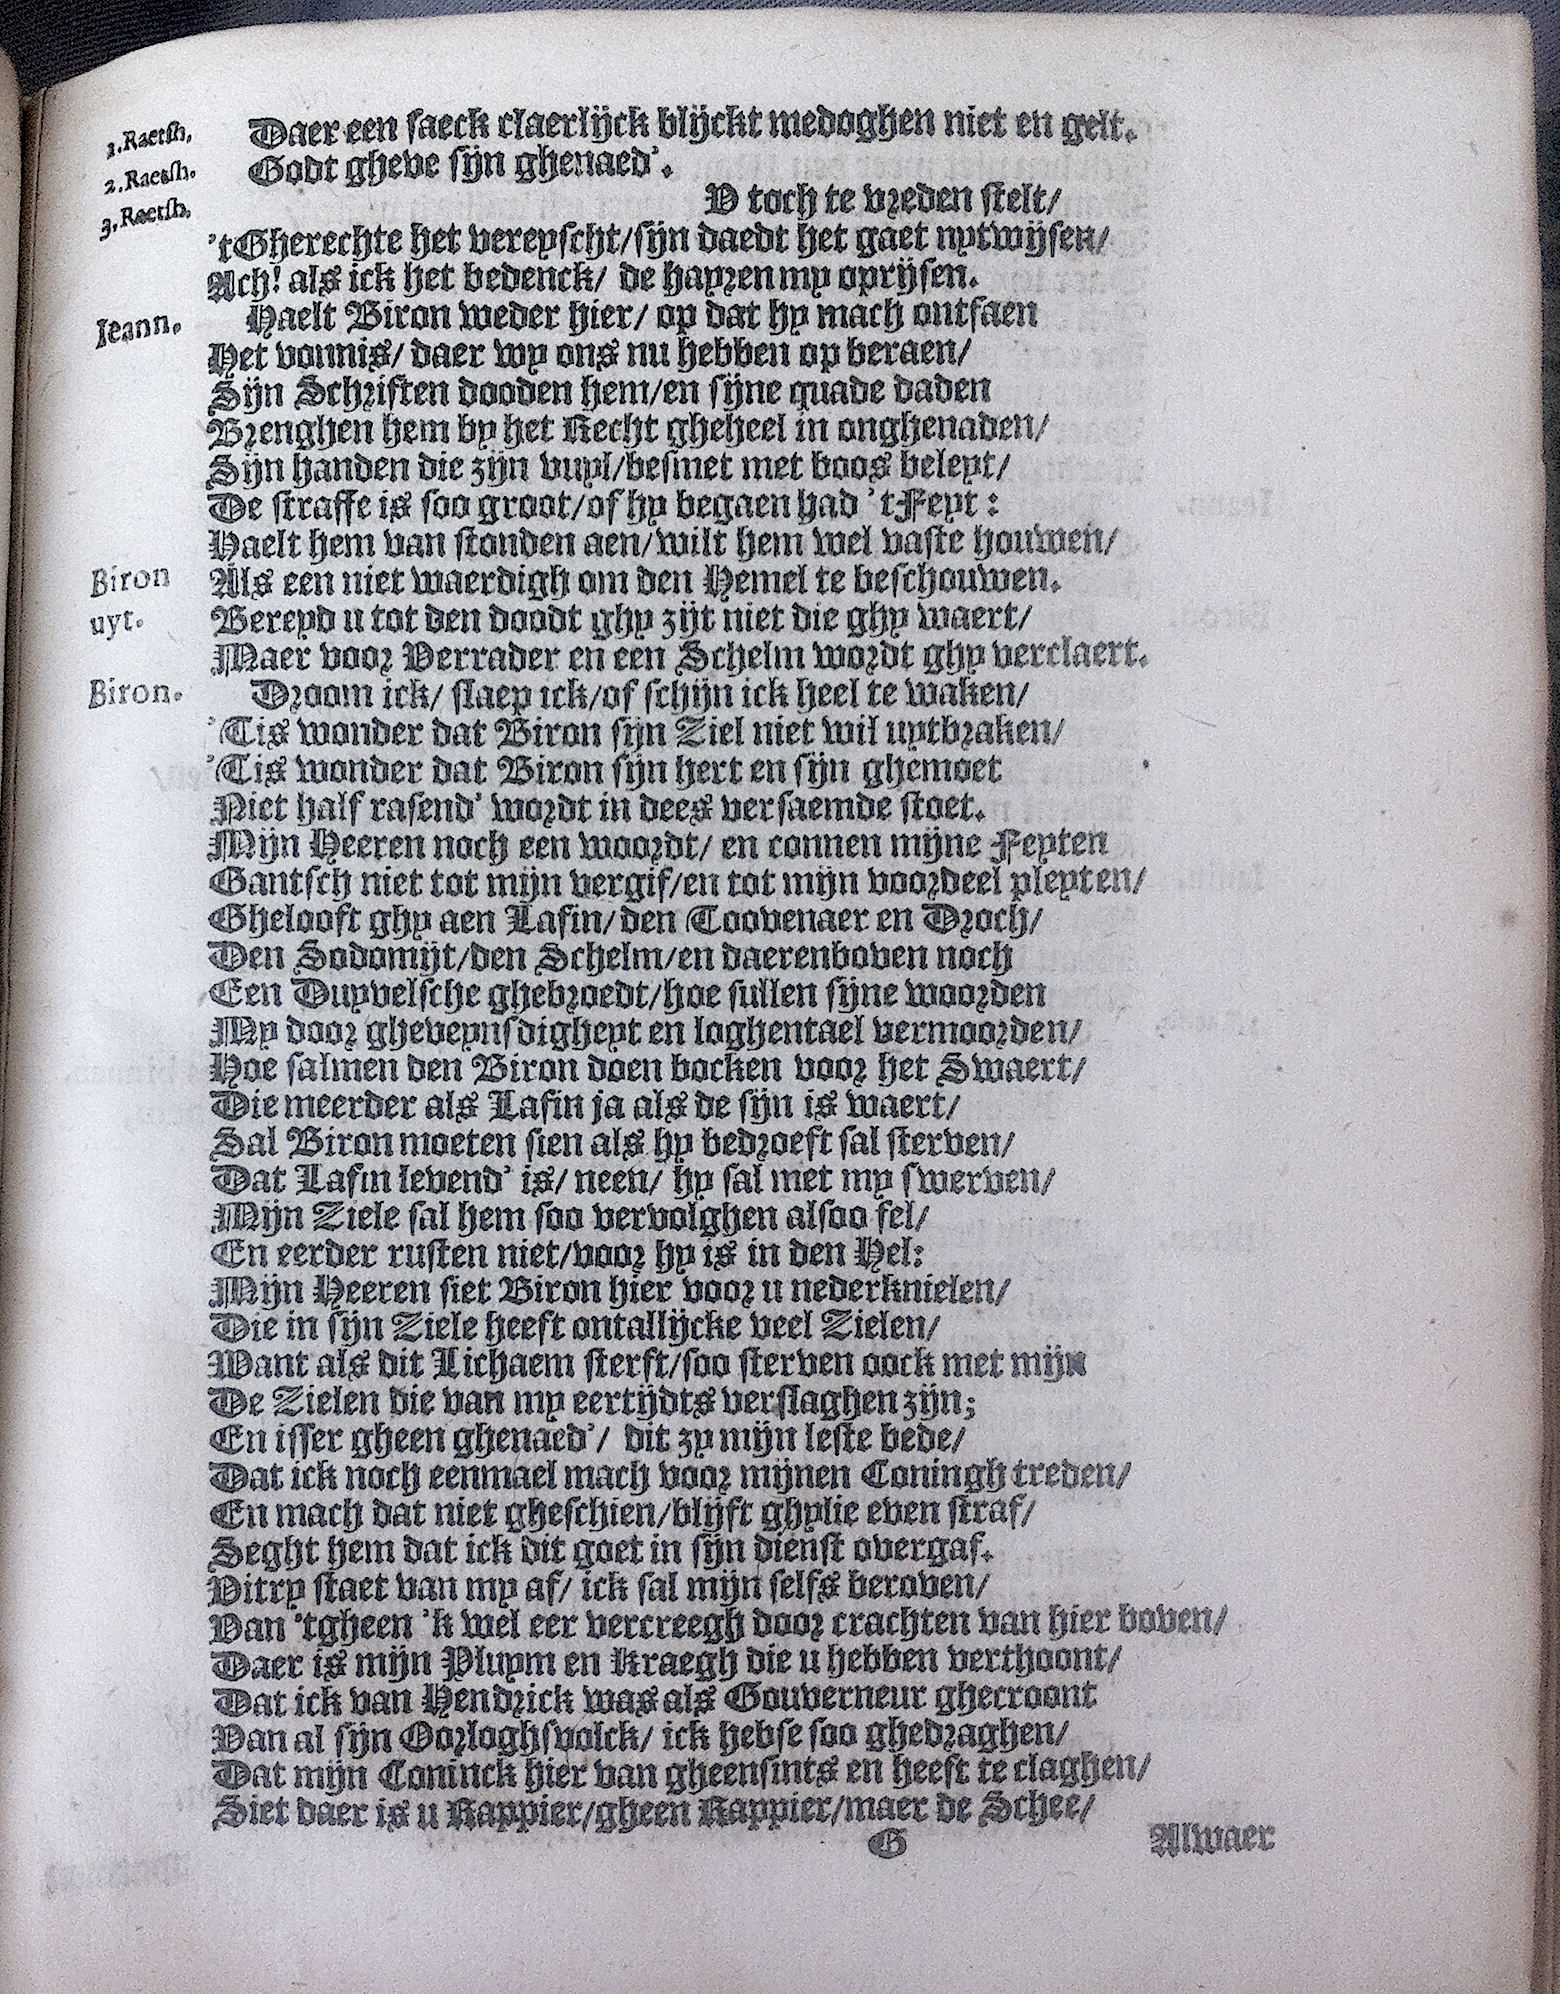 1.Raetsh. Daer een saeck claerlijck blijckt medoghen niet en gelt.
2.Raetsh. Godt gheve sijn ghenaed'.
3.Raetsh. V toch te vreden stelt/
'tGherechte het vereyscht/sijn daedt het gaet uytwijsen/
Ach! als ick het bedenck/ de hayren my oprijsen.
Ieann. Haelt Biron weder hier/ op dat hy mach ontfaen
Het vonnis/ daer wy ons nu hebben op beraen/
Sijn Schriften dooden hem/en sijne quade daden
Brenghen hem by het Recht gheheel in onghenaden/
Sijn handen die zijn vuyl/besmet met boos beleyt/
De straffe is soo groot/of hy begaen had 'tFeyt:
Haelt hem van stonden aen/wilt hem wel vaste houwen/
Biron Als een niet waerdigh om den Hemel te beschouwen.
uyt. Bereyd u tot den doodt ghy zijt niet die ghy waert/
Maer voor Verrader en een Schelm wordt ghy verclaert.
Biron. Droom ick/ slaep ick/of schijn ick heel te waken/
'Tis wonder dat Biron sijn Ziel niet wil uytbraken/
'Tis wonder dat Biron sijn hert en sijn ghemoet
Niet half rasend' wordt in dees versaemde stoet.
Mijn Heeren noch een woordt/ en connen mijne Feyten
Gantsch niet tot mijn vergif/en tot mijn voordeel pleyten/
Ghelooft ghy aen Lafin/den Toovenaer en Droch/
Den Sodomijt/den Schelm/en daerenboven noch
Een Duyvelsche ghebroedt/hoe sullen sijne woorden
My door gheveynsdigheyt en loghentael vermoorden/
Hoe salmen den Biron doen bocken voor het Swaert/
Die meerder als Lafin ja als de sijn is waert/
Sal Biron moeten sien als hy bedroeft sal sterven/
Dat Lafin levend' is/ neen/ hy sal met my swerven/
Mijn Ziele sal hem soo vervolghen alsoo fel/
En eerder rusten niet/voor hy is in den Hel:
Mijn Heeren siet Biron hier voor u nederknielen/
Die in sijn Ziele heeft ontallijcke veel Zielen/
Want als dit Lichaem sterft/soo sterven oock met mijn
De Zielen die van my eertijdts verslaghen zijn;
En isser gheen ghenaed'/ dit zy mijn leste bede/
Dat ick noch eenmael mach voor mijnen Coningh treden/
En mach dat niet gheschien/blijft ghylie even straf/
Seght hem dat ick dit goet in sijn dienst overgaf.
Vitry staet van my af/ ick sal mijn selfs beroven/
Van 'tgheen 'k wel eer vercreegh door crachten van hier boven/
Daer is mijn Pluym en Kraegh die u hebben verthoont/
Dat ick van Hendrick was als Gouverneur ghecroont
Van al sijn Oorloghsvolck/ ick hebse soo ghedraghen/
Dat mijn Coninck hier van gheensints en heeft te claghen/
Siet daer is u Rappier/gheen Rappier/maer de Schee/
G Alwaer